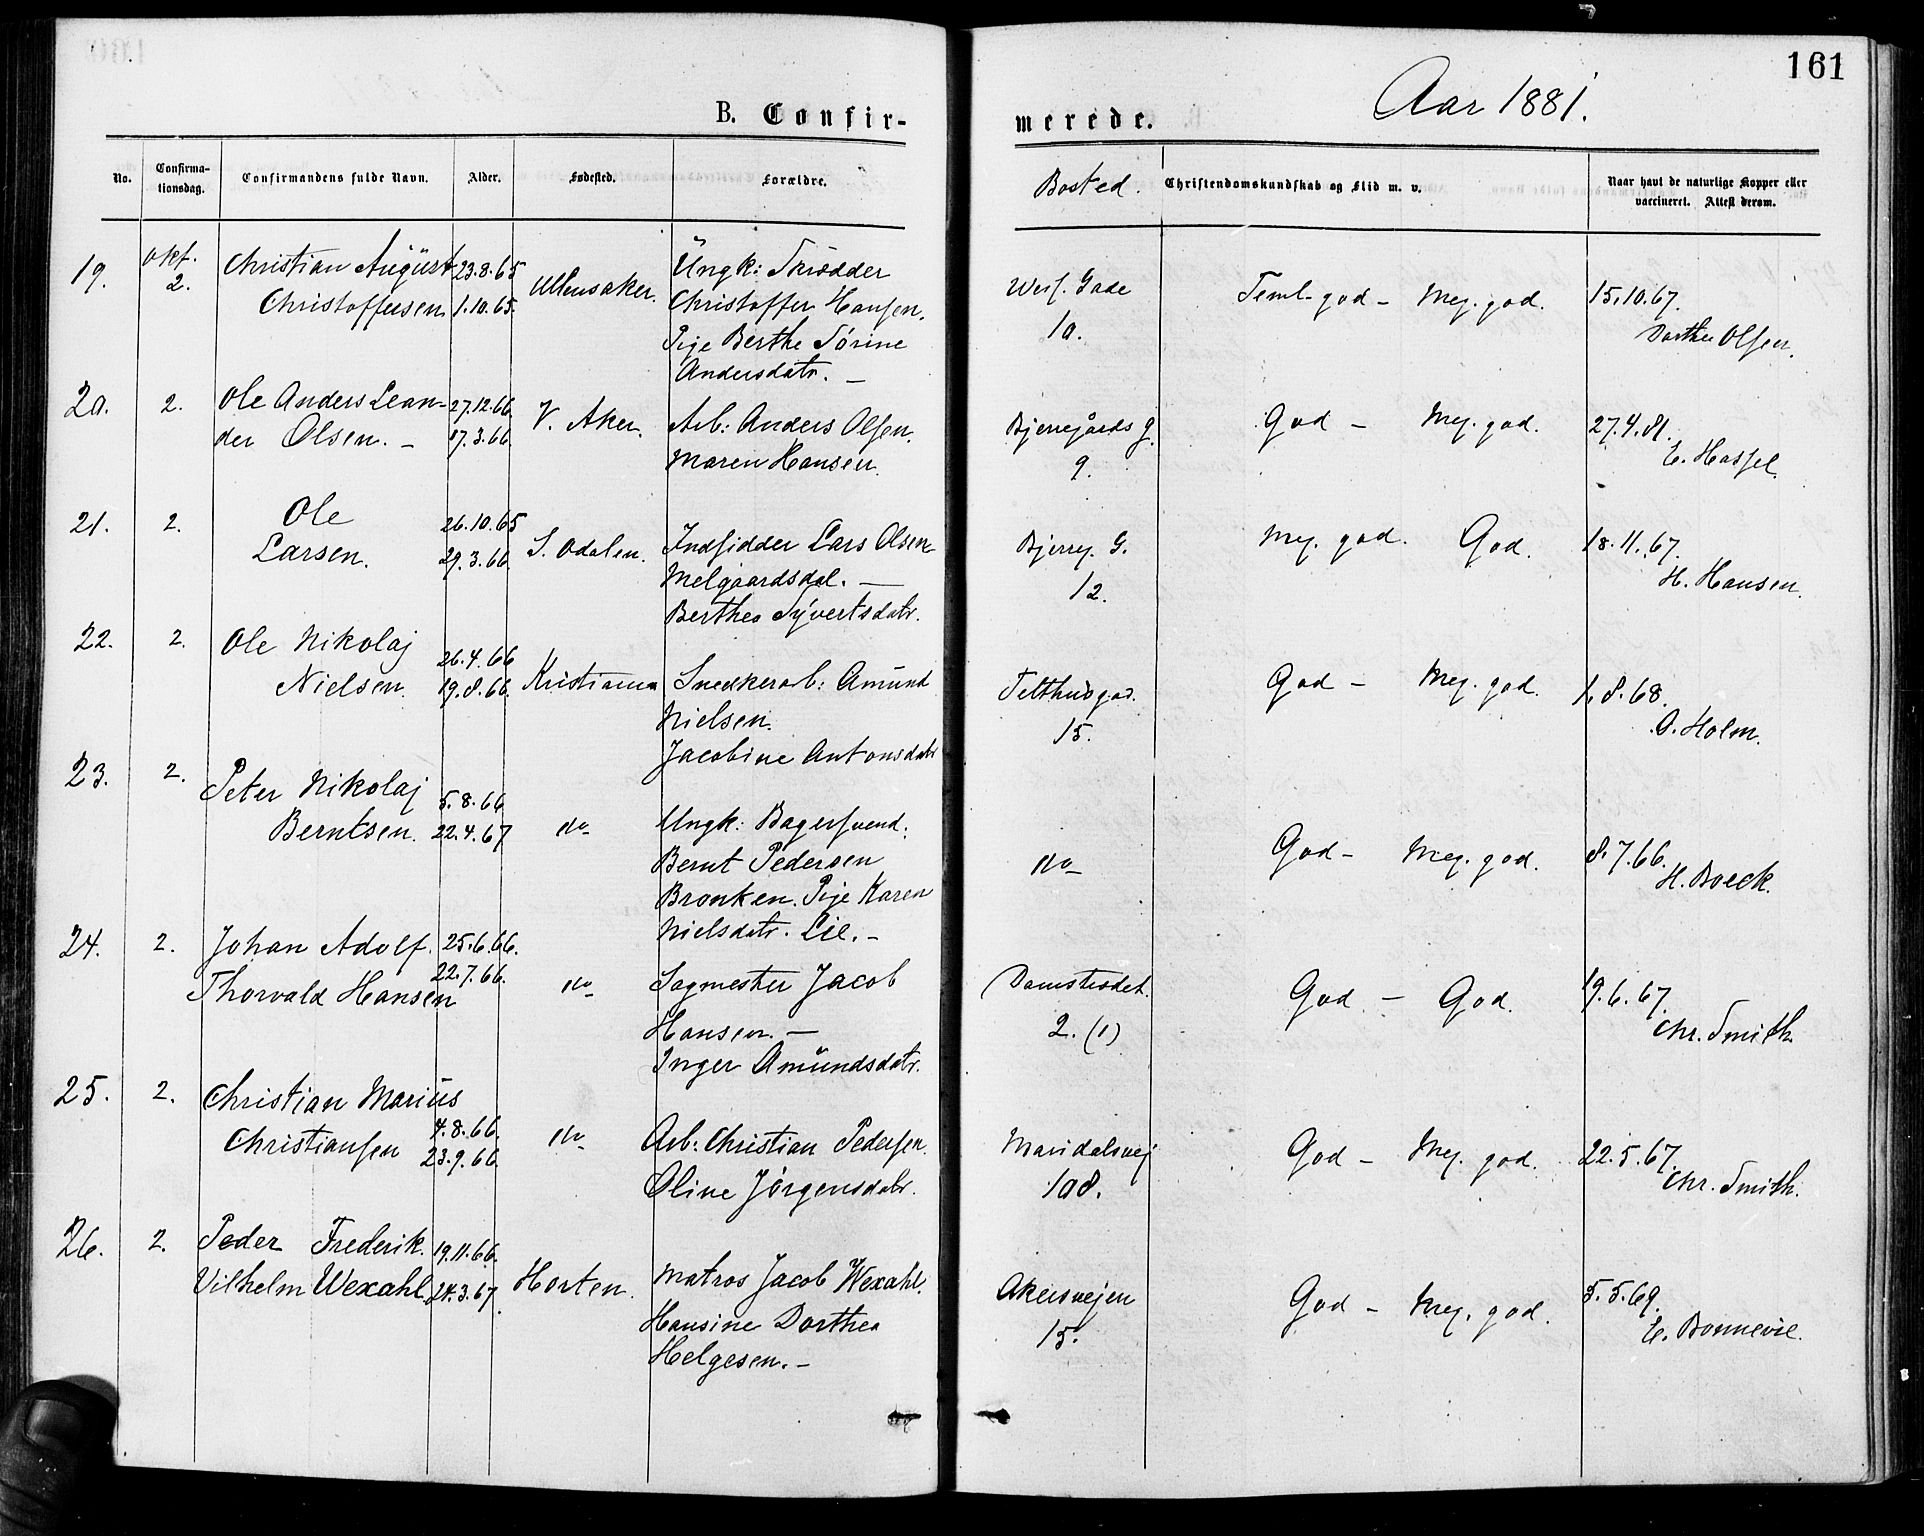 161
Aar 1881.
B. Confir-
merede.
No.
Confirma-
tionsdag.
Confirmandens fulde Navn.
Alder.
Fødested.
Forældre.
Bosted.
Christendomskundskab og Flid m. v.
Naar havt de naturlige Kopper eller
vaccineret. Attest derom.
19. Okt. 2. Christian August 23.8.65 Ullensaker. Ungk: Skrædder
Christoffersen 1.10.65. Christoffer Hansen.
Pige Berthe Sørine
Andersdatr. —
Gade
10.
Teml. god – Meg. god.
15.10.67.
Dorthe Olsen.
20. 2. Ole Anders Lean- 27.12.66. V. Aker. Arb: Anders Olsen.
der Olsen. – 17.3.66. Maren Hansen.
Bjerregårds g.
9.
God – Meg. god.
27.4.81.
E. Hassel.
21. 2. Ole 26.10.65
Larsen. 29.3.66. S. Odalen. Indsidder Lars Olsen
Melgaardsdal. —
Berthea Syvertsdatr.
Bjerreg. G.
12.
Meg. god. God.
18.11.67.
H. Hansen.
22. 2. Ole Nikolaj 26.4.66
Nielsen. 19.8.66. Kristiania Snedkerarb: Amund
Nielsen.
Jacobine Antonsdatr
Telthusgad.
15.
God – Meg. god.
1.8.68.
O. Holm.
23. 2. Peter Nikolaj 5.8.66
Berntsen. 22.4.67 do Ungk: Bagersvend.
Bernt Pedersen
Bronken. Pige Karen
Nielsdatr. Lie. –
do
God – Meg. god.
8.7.66.
H. Boeck.
24. 2. Johan Adolf 25.6.66.
Thorvald Hansen 22.7.66. do Sagmester Jacob
Hansen. —
Inger Amundsdatr.
Damstredet.
2. (1)
God. – God.
19.6.67.
Chr. Smith
25. 2. Christian Marius
Christiansen 4.8.66. do Arb: Christian Pedersen.
23.9.66. Oline Jørgensdatr.
Maridalsvej
108.
God – Meg. god.
22.5.67.
Chr. Smith.
26. 2. Peder Frederik. 19.11.66.
Vilhelm Wexahl. 24.3.67. Horten. Matros Jacob Wexahl.
Hansine Dorthea
Helgesen. –
Akersvejen
15.
God – Meg. god.
5.5.69.
E. Bonnevie.